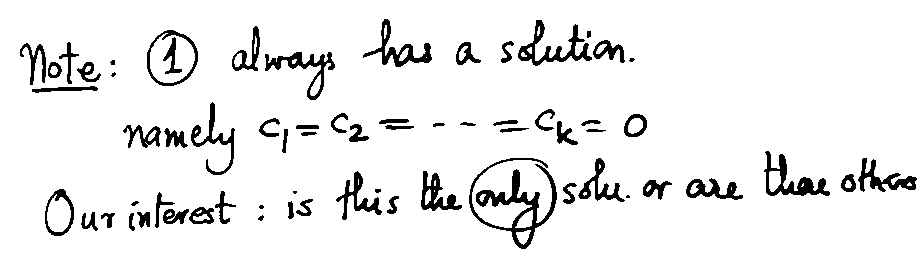 Note: ① always has a solution.
namely c₁ = c₂ = - - - = cₖ = 0
Our interest : is this the only solu. or are there others